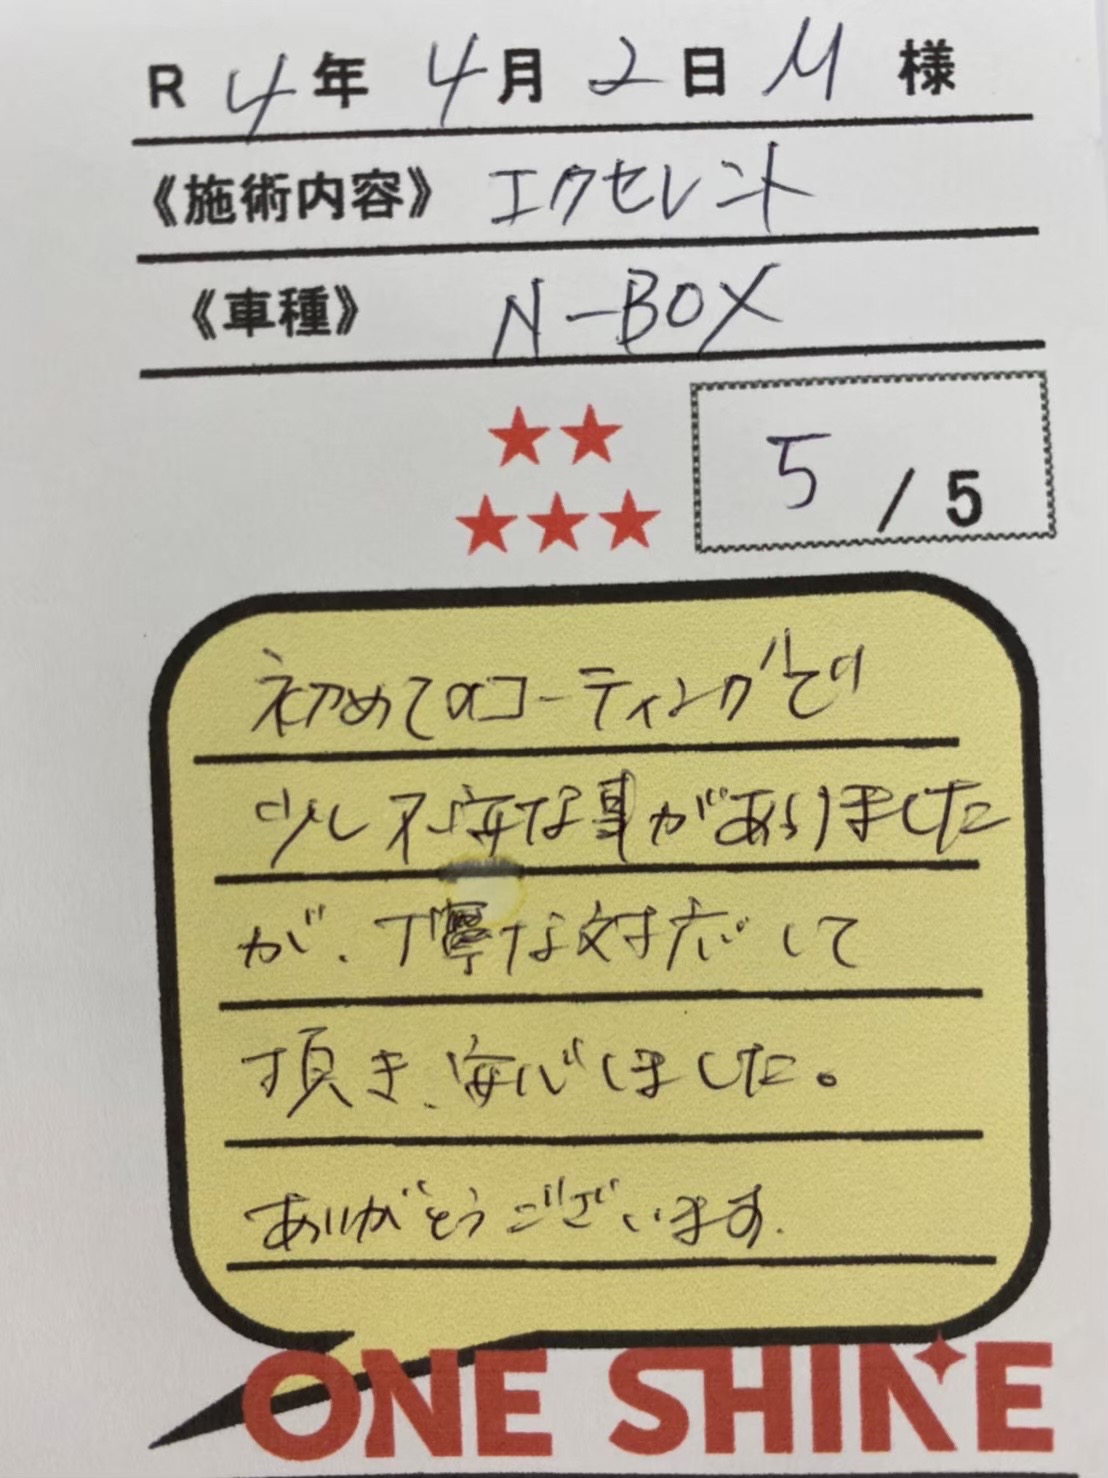 R 4年 4月 2日 M 様
《施術内容》 エクセレント
《車種》 N-BOX
5 / 5
初めてのコーティングで
少し不安な事がありました
が、丁寧な対応して
頂き、安心しました。
ありがとうございます.
ONE SHINE